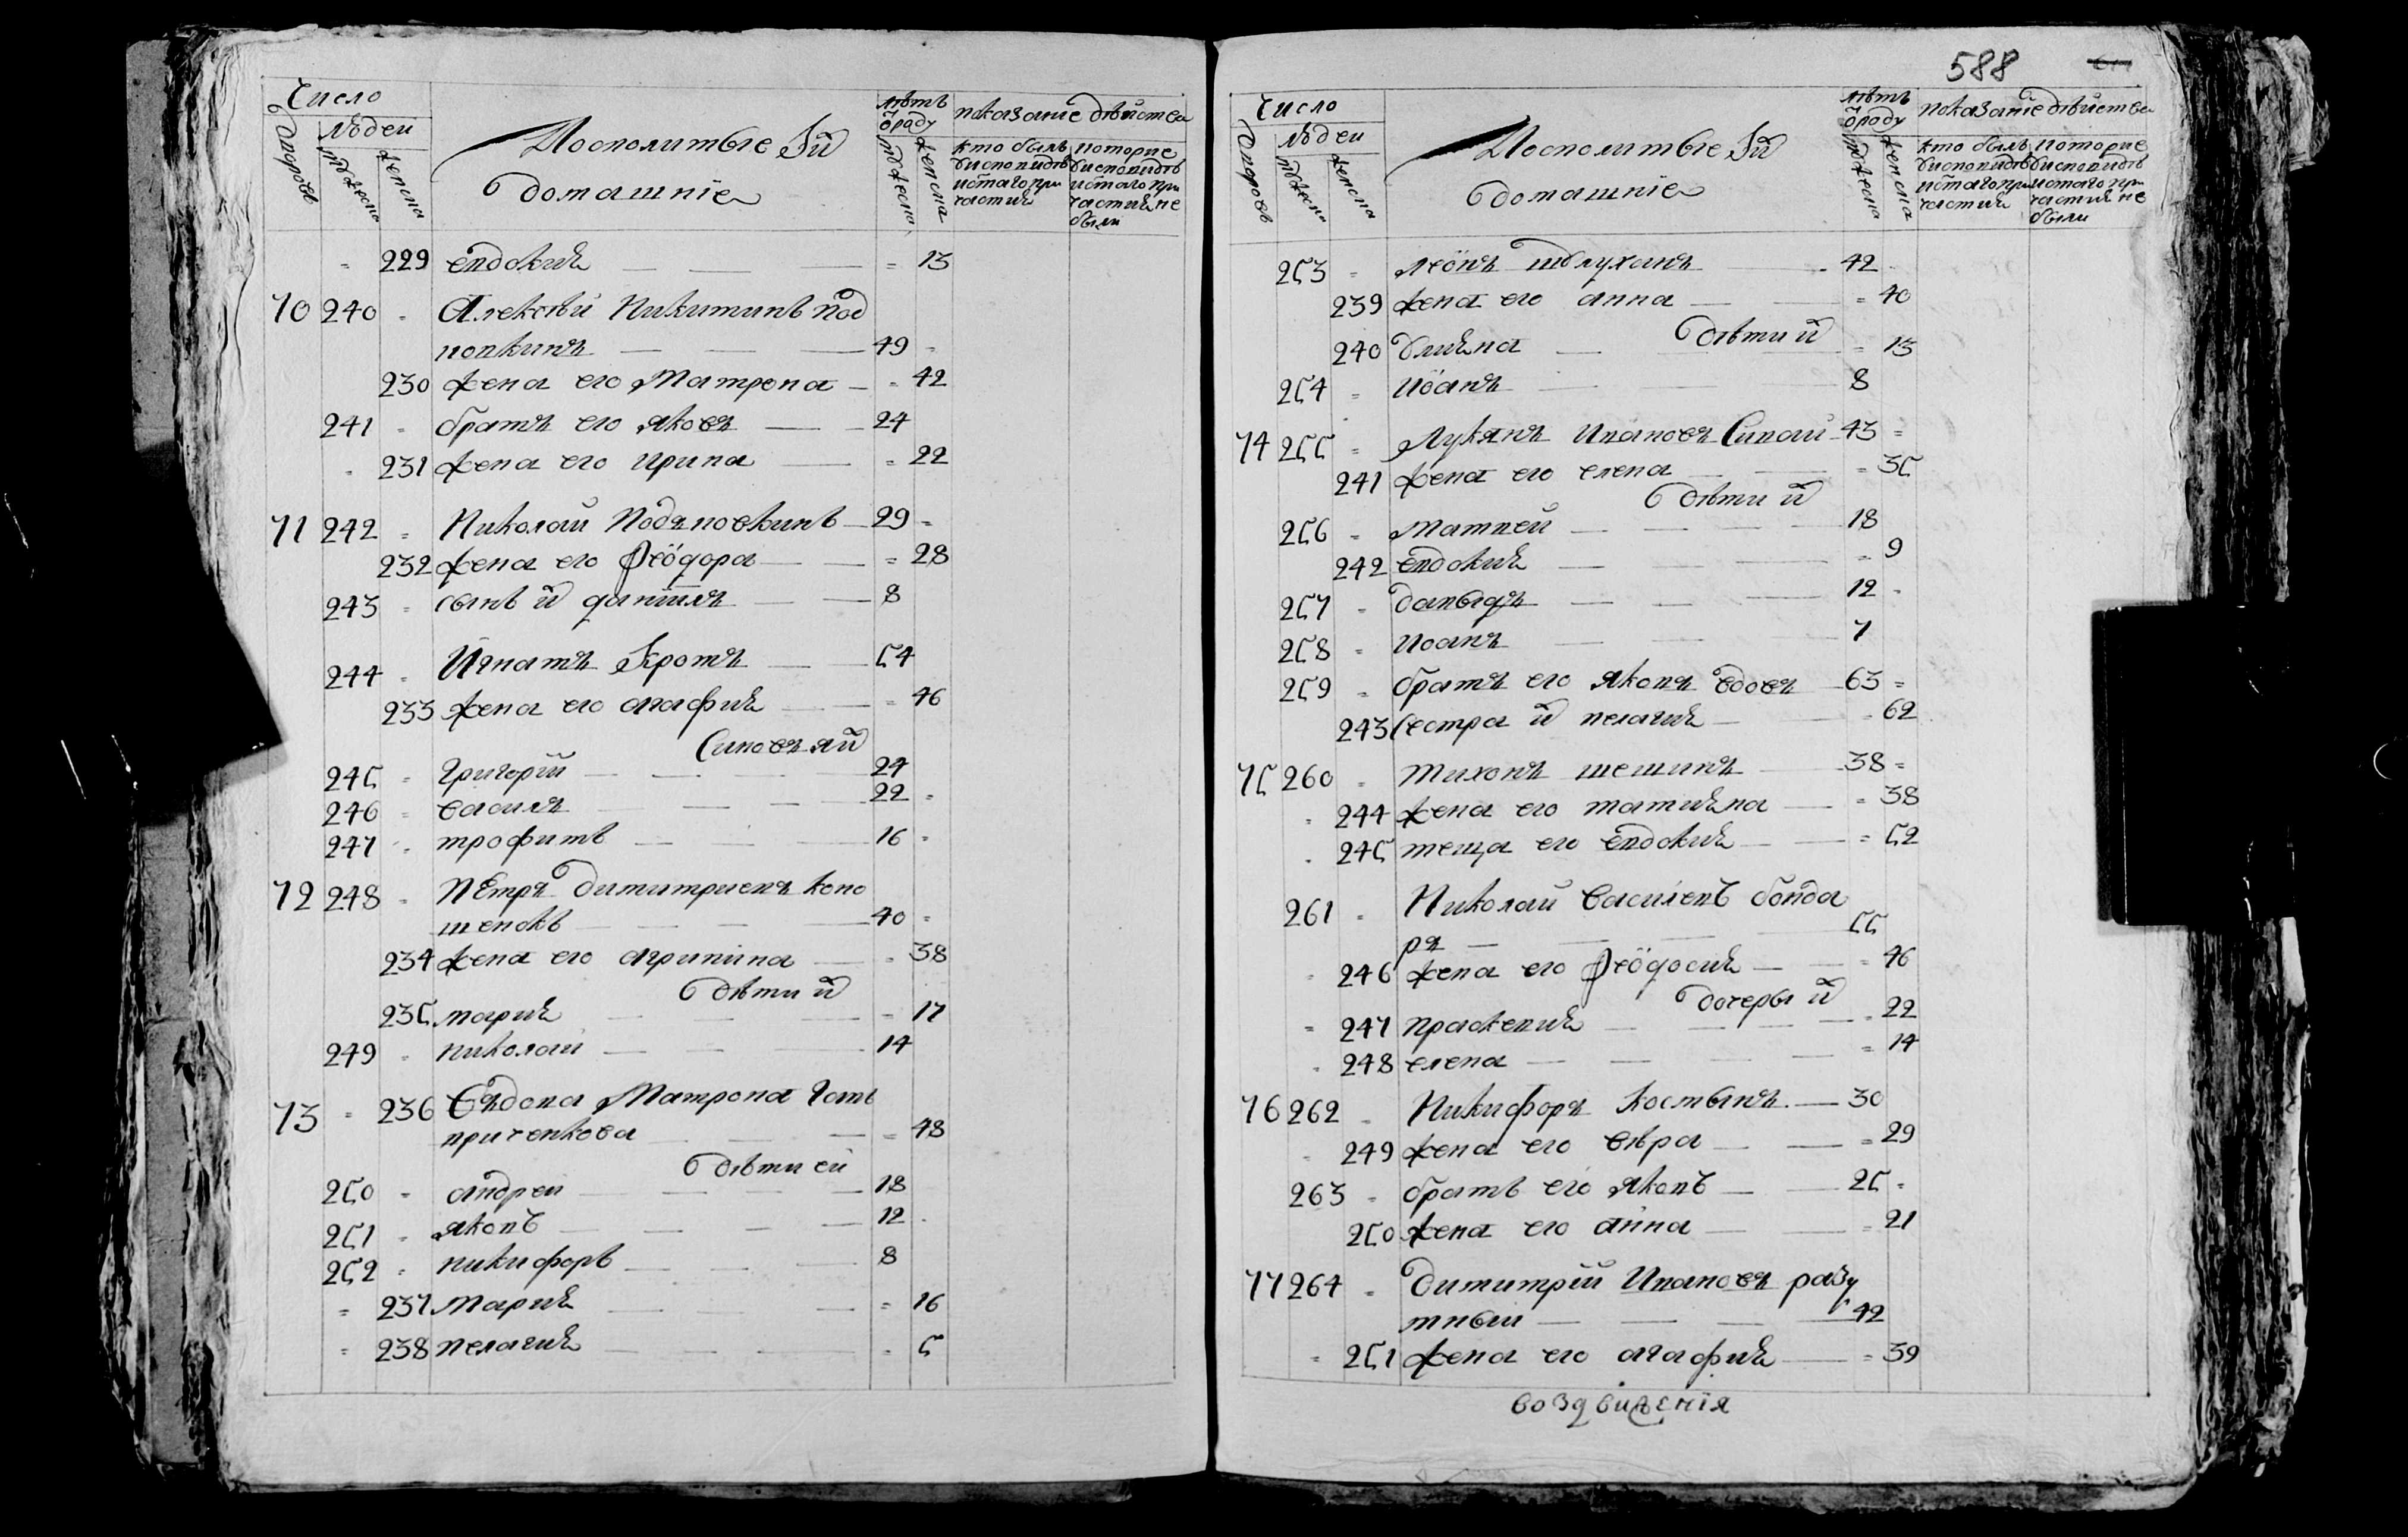 Число
людей
дворовъ
мужеска
женска
Посполитые Ӏй
домашние
лѣтъ
ѿроду
мужеска
женска
показание дѣйства
кто былъ
висповидѣ
истаго при
частия
которие
висповидѣ
истаго при
частия не
были
229 евдокия 13
70 240 Алексѣй Никитинъ под
повкинъ 49
230 жена его Матрона 42
241 братъ его яковъ 24
231 жена его ирина 22
71 242 Николай Подяповкинъ 29
232 жена его Феѡдора 28
243 сынъ ихъ даниилъ 8
244 Игнатъ Кротъ 54
233 жена его агафия 46
Синовья ихъ
245 григорій 24
246 василъ 22
247 трофимъ 16
72 248 Пѣтръ димитриевъ коно
шенокъ 40
234 жена его агрипина 38
дѣти ихъ
235 мария 17
249 николай 14
73 236 Вядова Матрона Гот
виченкова 48
дѣти ей
250 андрей 18
251 яковъ 12
252 никифоръ 8
237 Мария 16
238 пелагия 5
588
Число
людей
дворовъ
мужеска
женска
Посполитые Ӏй
домашние
лѣтъ
ѿроду
мужеска
женска
показание дѣйства
кто былъ
висповидѣ
истаго при
частия
которие
висповидѣ
истаго при
частия не
были
253 леѡнъ шолуханъ 42
239 жена его анна 40
дѣти ихъ
240 улияна 13
254 иѡанъ 8
74 255 Лукянъ Ивановъ Сивай 43
241 жена его елена 35
дѣти ихъ
256 матвей 18
242 евдокия 9
257 давыдъ 12
258 иоанъ 7
259 братъ его яковъ вдовъ 63
243 сестра ихъ пелагия 62
75 260 тихонъ шешинъ 38
244 жена его татияна 38
245 теща его евдокия 52
261 Николай Василевъ бонда
ръ 55
246 жена его Феѡдосия 46
дочеры ихъ
247 праскевия 22
248 елена 14
76 262 Никифоръ Костынъ 30
249 жена его вѣра 29
263 братъ его яковъ 25
250 жена его анна 21
77 264 димитрій Ивановъ разу
мный 42
251 жена его агафия 39
воздвижения